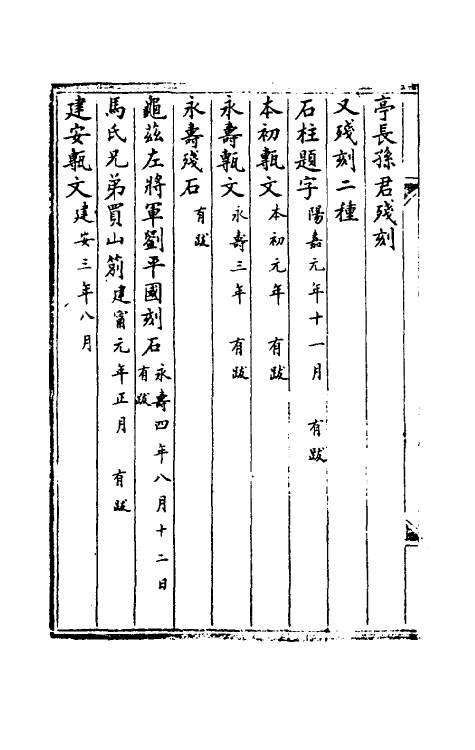 亭長孫君殘刻
又殘刻二種
石柱題字 陽嘉元年十一月 有跋
本初甎文 本初元年 有跋
永壽甎文 永壽三年 有跋
永壽殘石 有跋
龜兹左將軍劉平國刻石 永壽四年八月十二日 有跋
馬氏兄弟買山莂 建甯元年正月 有跋
建安甎文 建安三年八月